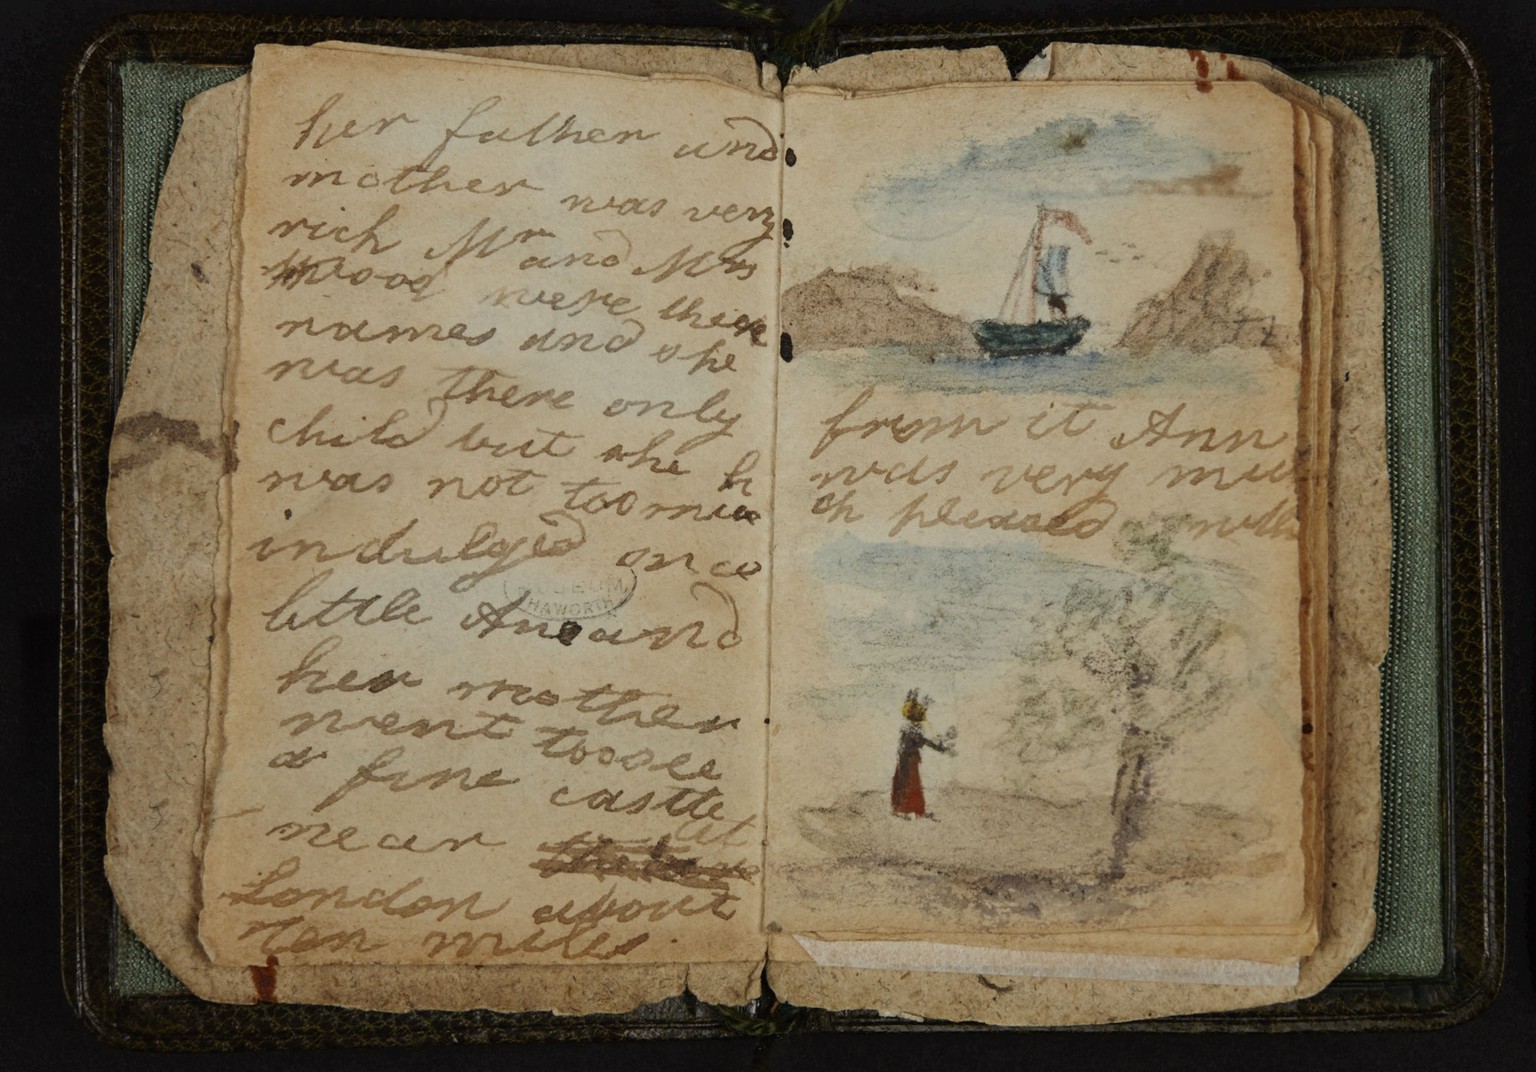 her father and
mother was very
rich Mr and Mrs
Wood were there
names and she
was there only
child but she h
was not too muc
indulged once
little Ane and
her mother
went too see
a fine castle
near at
London about
Ten miles
MUSEUM
HAWORTH
from it Ann
was very mu
ch pleased with